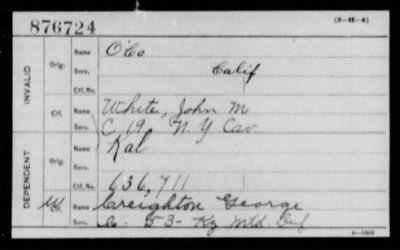 876724 (3-H-4)
INVALID
Orig.
Name O'Co
Serv. Calif
Ctf. No.
Ctf.
Name White, John M
Serv. C 19 N.Y Cav
DEPENDENT
Orig.
Name Kal
Serv.
Ctf. No. 636,711
Ctf.
Name Creighton George
Serv. Co. 53- Ky Mtd. Inf